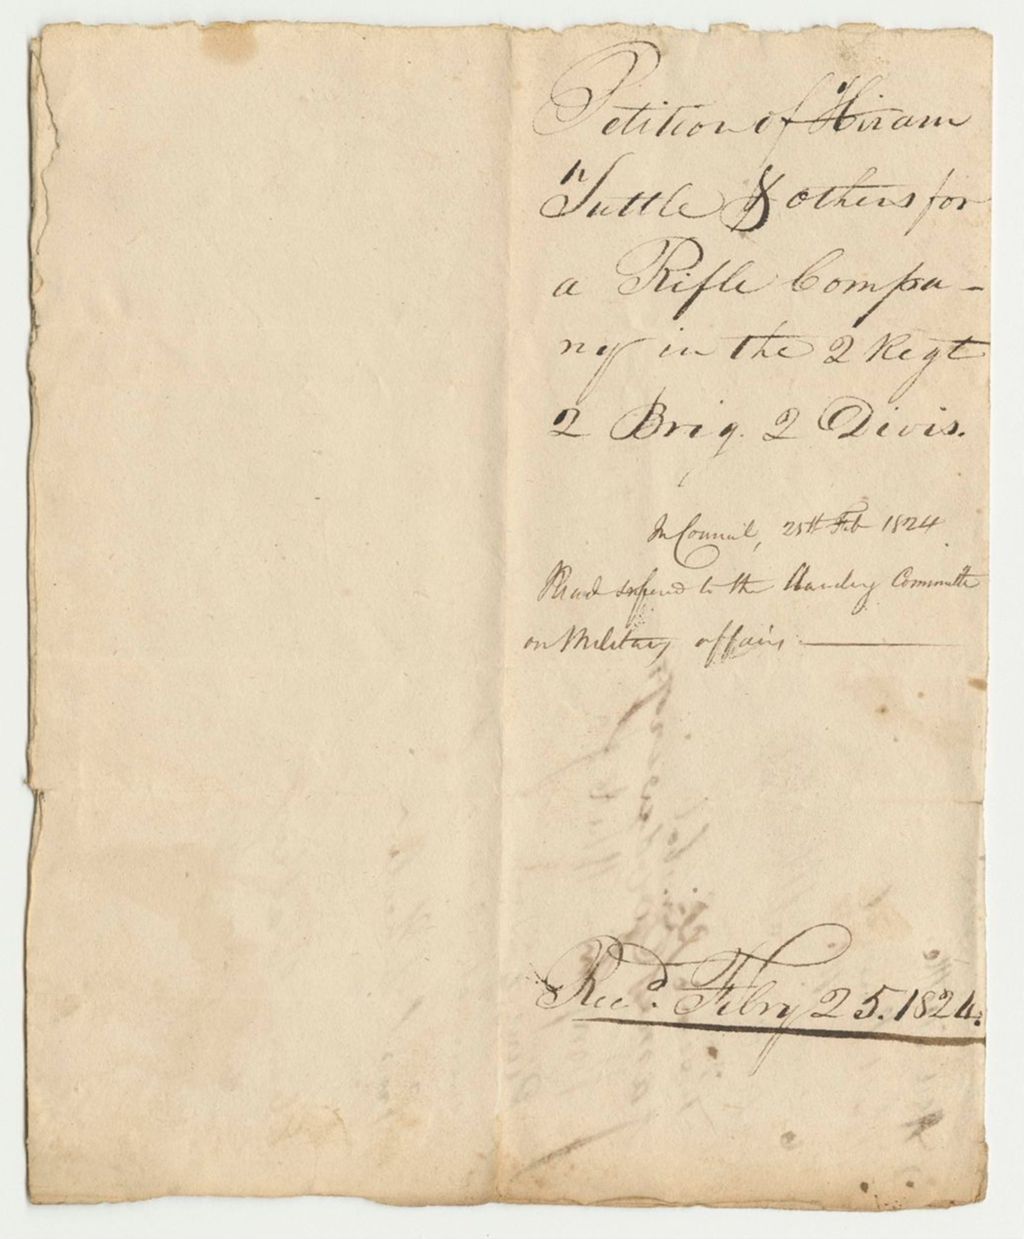 Petition of Hiram
Tuttle & others for
a Rifle Compa-
ny in the 2 Regt
2 Brig. 2 Divis.
In Council, 25th Feb 1824
Read & referred to the Standing Committee
on Military affairs
Recd. Febry 25. 1824.